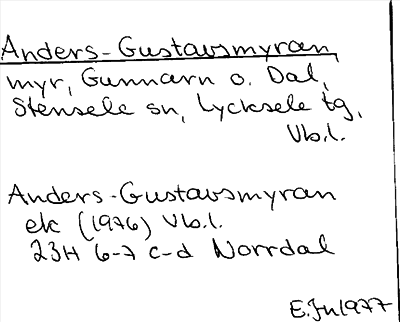 Anders-Gustavsmyran,
myr, Gunnarn o. Dal,
Stensele sn, Lycksele tg,
Vb.l.
Anders-Gustavsmyran
ek (1976) Vb.l.
23H 6-7 c-d Norrdal
E.Jn 1977